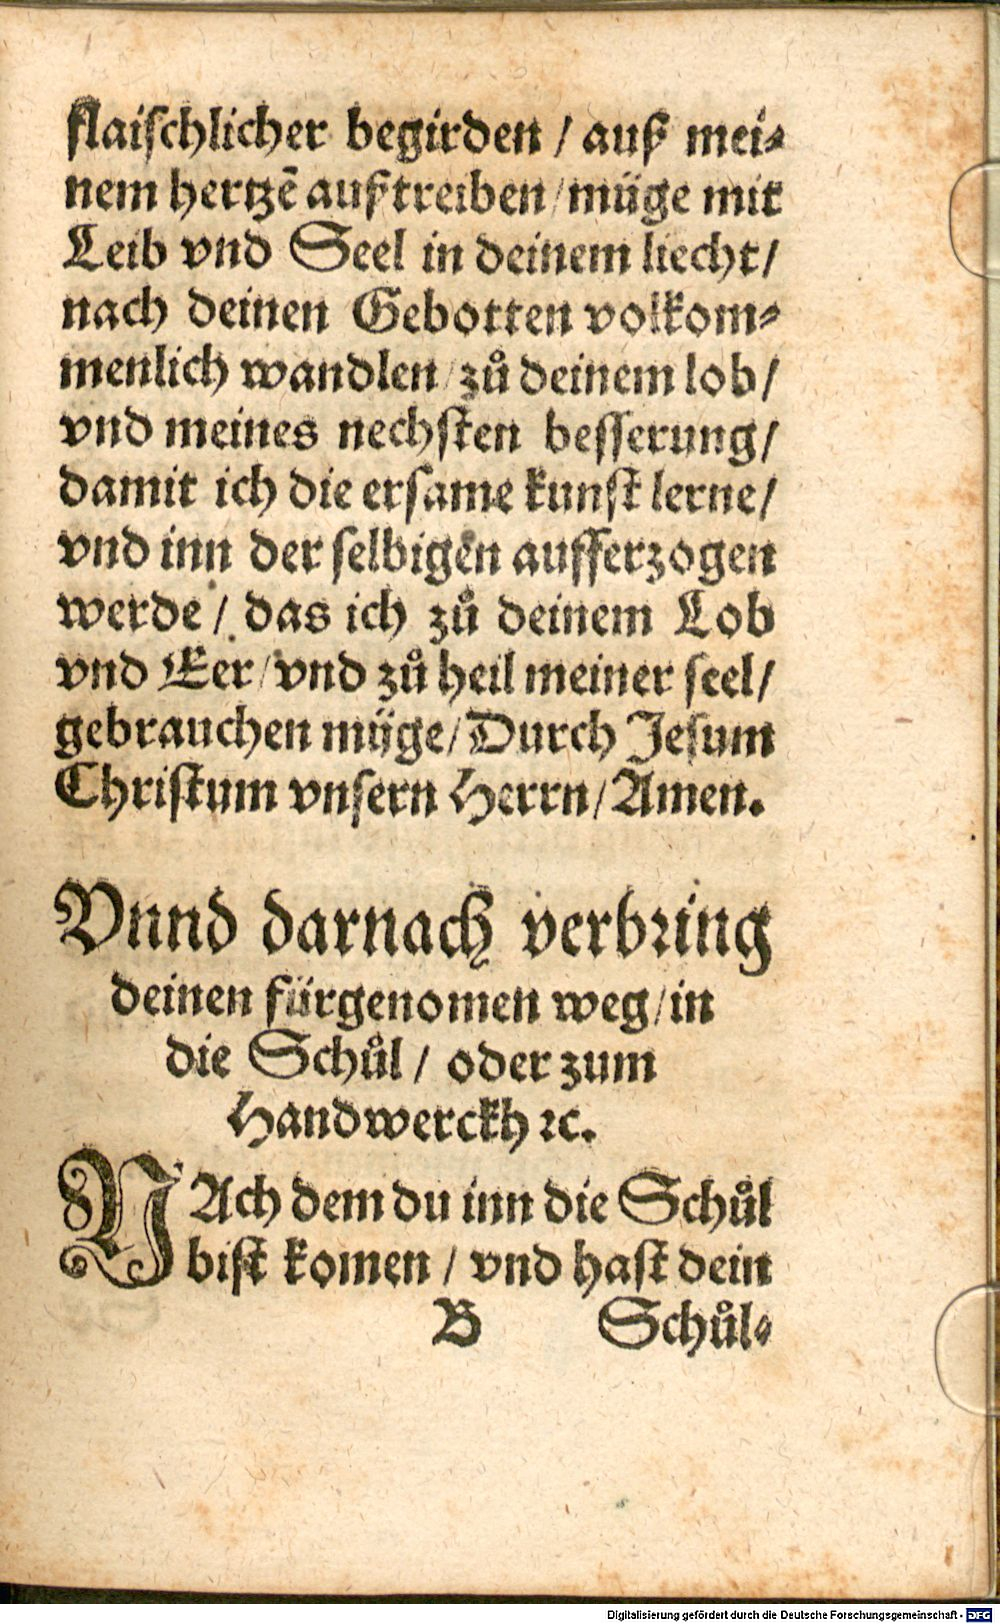 flaischlicher begirden / auß mei⸗
nem hertzē außtreiben / müge mit
Leib vnd Seel in deinem liecht /
nach deinen Gebotten volkom⸗
menlich wandlen / zů deinem lob /
vnd meines nechsten besserung /
damit ich die ersame kunst lerne /
vnd inn der selbigen aufferzogen
werde / das ich zů deinem Lob
vnd Eer / vnd zů heil meiner seel /
gebrauchen müge / Durch Jesum
Christum vnsern Herrn / Amen.
Vnnd darnach verbring
deinen fürgenomen weg / in
die Schůl / oder zum
Handwerckh ꝛc.
NAch dem du inn die Schůl
bist komen / vnd hast dein
B Schůl⸗
Digitalisierung gefördert durch die Deutsche Forschungsgemeinschaft - DFG